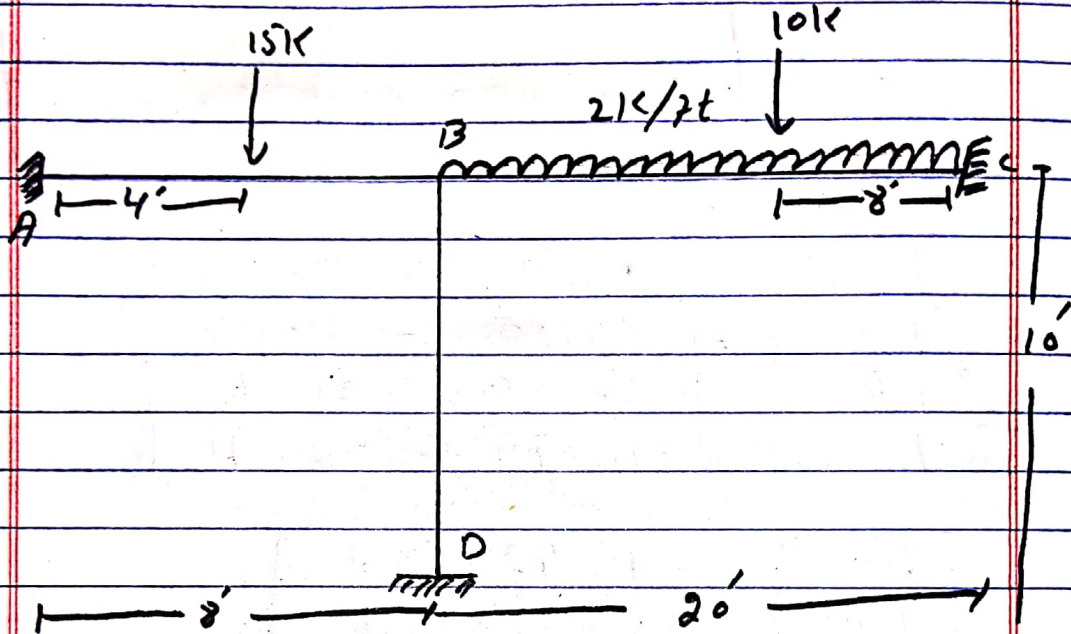 15K
10K
2K/ft
B
C
4'
8'
A
10'
D
8'
20'